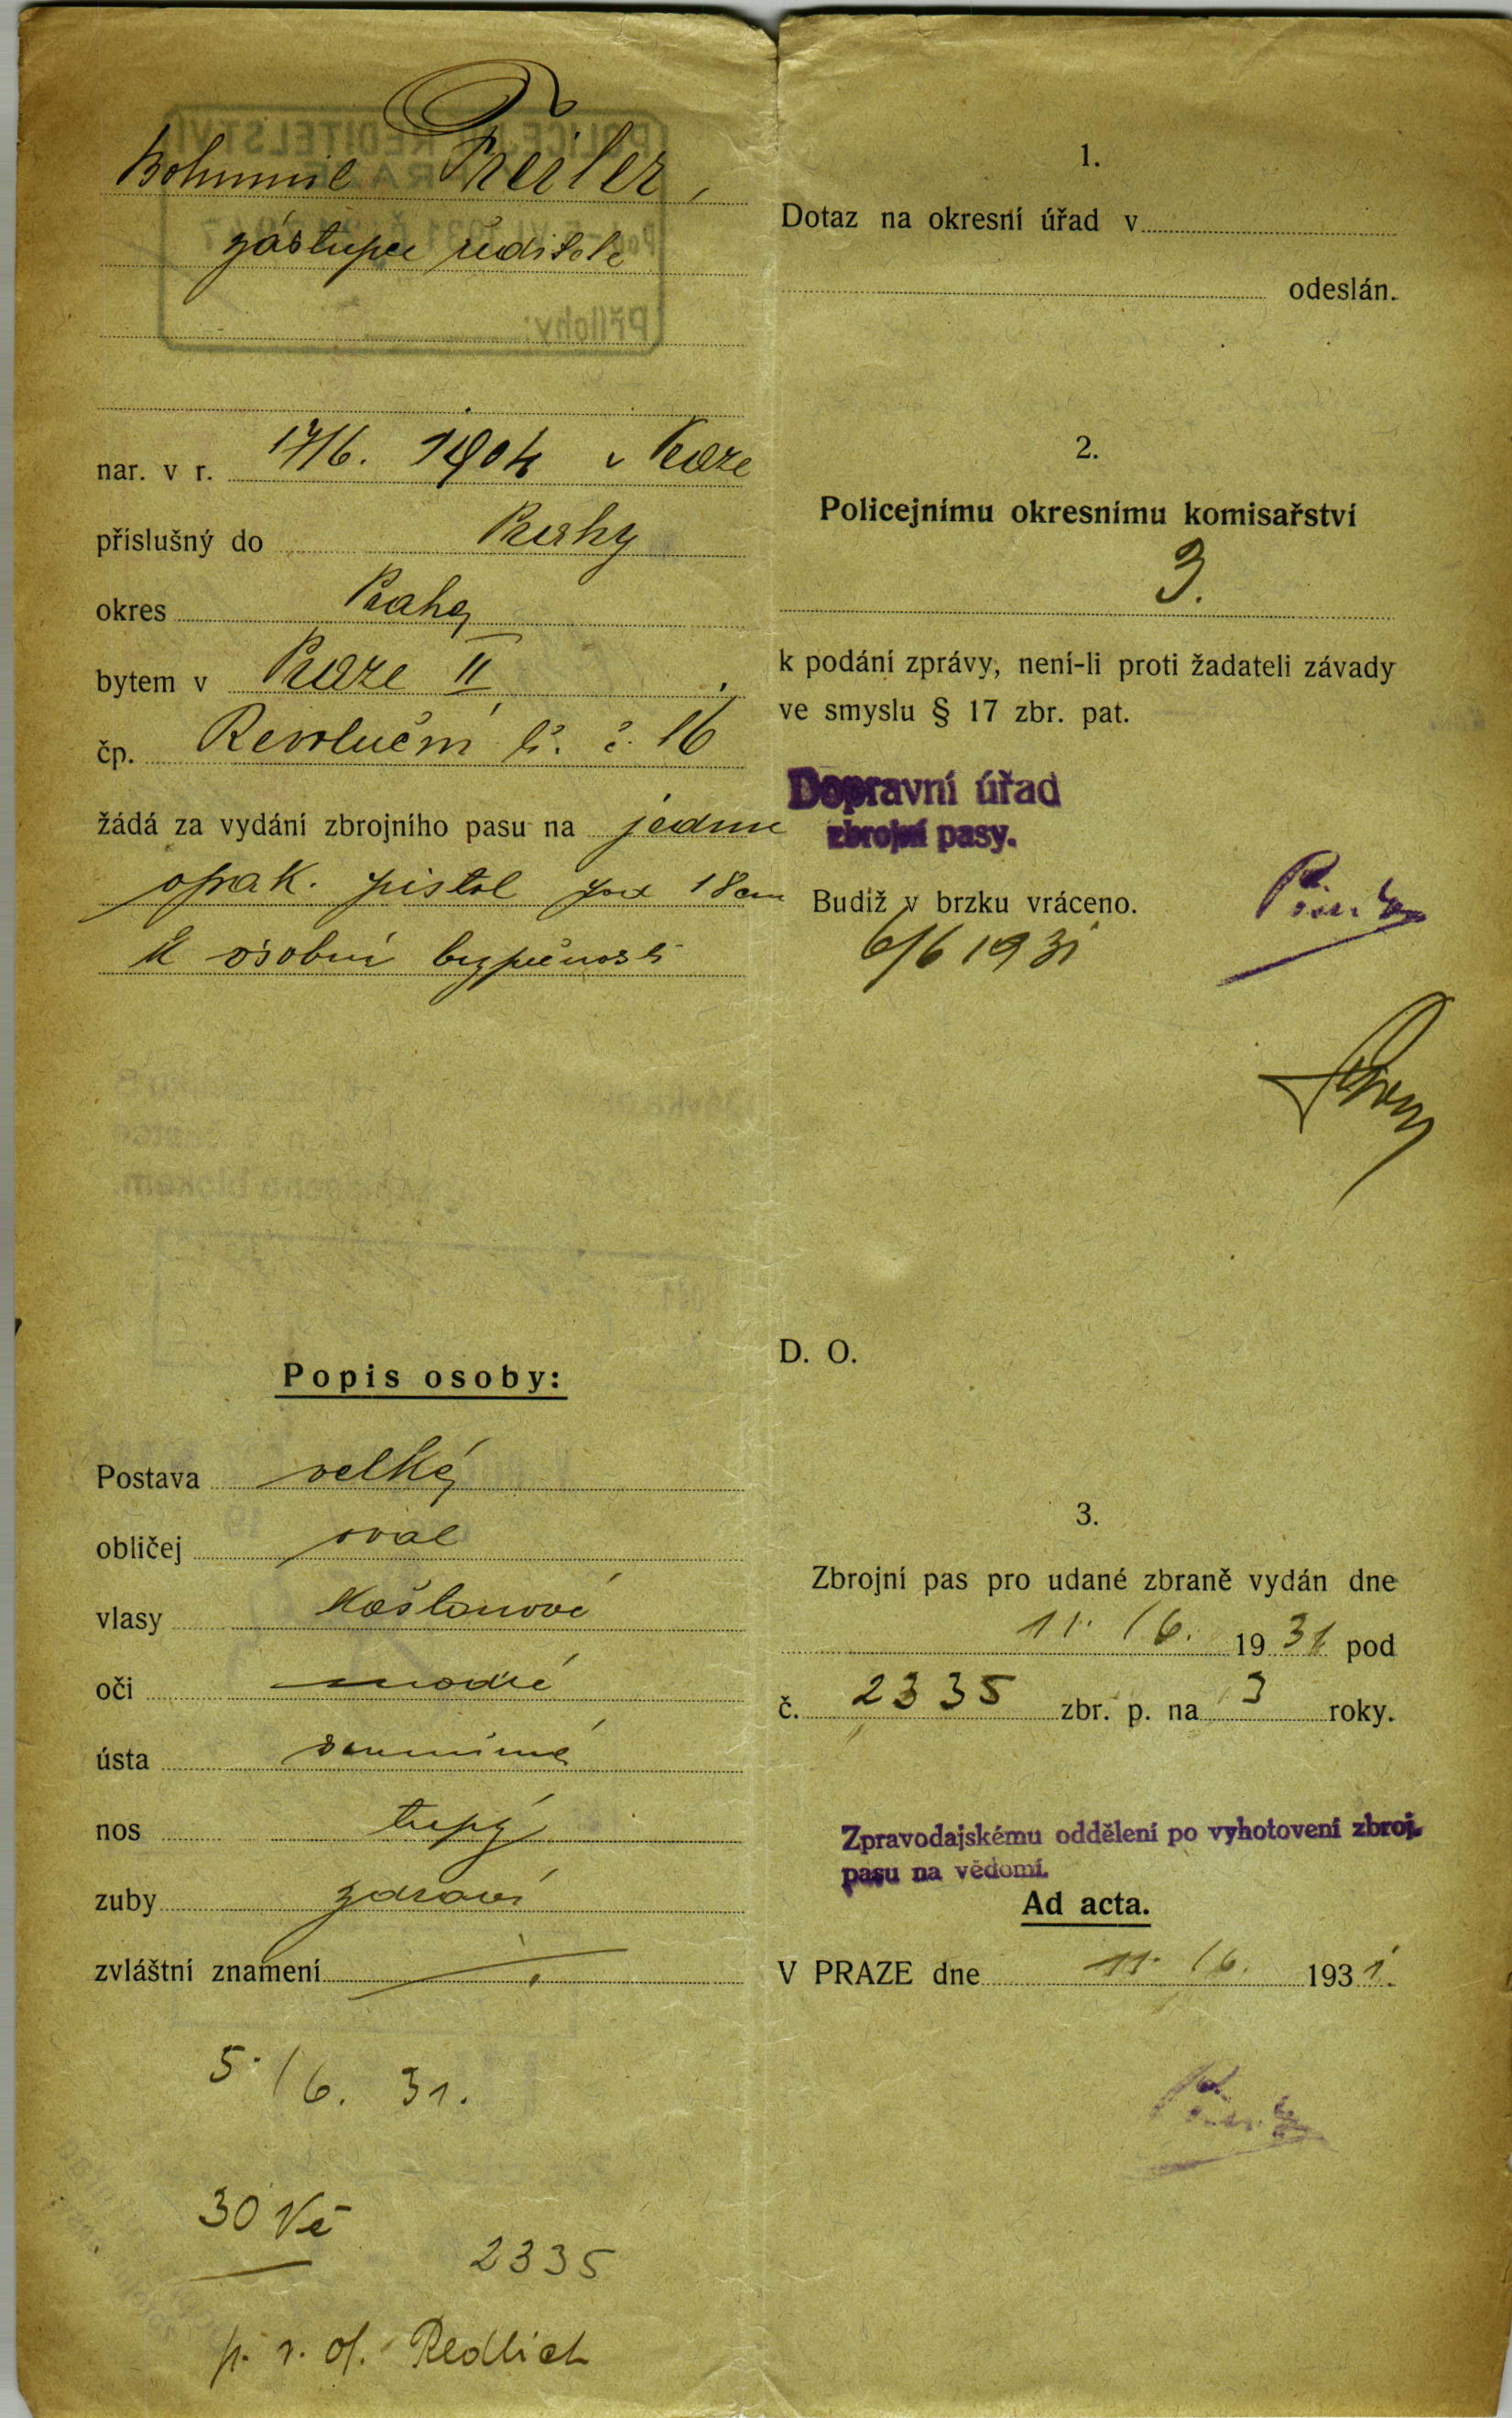 Bohumil Freiler,
zástupce ředitele
nar. v r. 17/6. 1904 v Praze
příslušný do Prahy
okres Praha
bytem v Praze II,
čp. Revoluční tř. č. 16
žádá za vydání zbrojního pasu na jednu
opak. pistol pod 18 cm
k osobní bezpečnosti
Popis osoby:
Postava velký
obličej oval
vlasy kaštanové
oči modré
ústa souměrné
nos tupý
zuby zdravé
zvláštní znamení
5./6. 31.
30 Kč
2335
p. r. of. Redlich
1.
Dotaz na okresní úřad v
odeslán.
2.
Policejnímu okresnímu komisařství
3.
k podání zprávy, není-li proti žadateli závady
ve smyslu § 17 zbr. pat.
Dopravní úřad
zbrojní pasy.
Budiž v brzku vráceno.
6/6 1931
D. O.
3.
Zbrojní pas pro udané zbraně vydán dne
11./6. 1931 pod
č. 2335 zbr. p. na 3 roky.
Zpravodajskému oddělení po vyhotovení zbroj.
pasu na vědomí.
Ad acta.
V PRAZE dne 11./6. 1931.